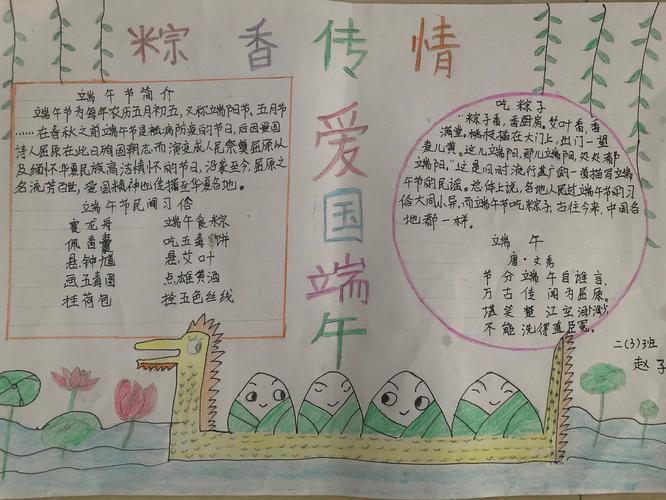 粽香传情
爱国端午
端午节简介
端午节为每年农历五月初五，又称端阳节、五月节
……在春秋之前端午节是祛病防疫的节日，后因爱国
诗人屈原在此日殉国明志而演变成人民祭奠屈原以
及缅怀华夏民族高洁情怀的节日，沿袭至今，屈原之
名流芳百世，爱国精神也传播至华夏各地。
端午节民间习俗
赛龙舟 端午食粽
佩香囊 吃五毒饼
悬钟馗 悬艾叶
画五毒图 点雄黄酒
挂荷包 拴五色丝线
吃粽子
"粽子香，香厨房。艾叶香，香
满堂。桃枝插在大门上，出门一望
麦儿黄。这儿端阳，那儿端阳，处处都
端阳。"这是旧时流行甚广的一首描写过端
午节的民谣。总体上说，各地人民过端午节的习
俗大同小异，而端午节吃粽子，古往今来，中国各
地都一样。
端午
唐·文秀
节分端午自谁言，
万古传闻为屈原。
堪笑楚江空渺渺，
不能洗得直臣冤。
二(3)班
赵子